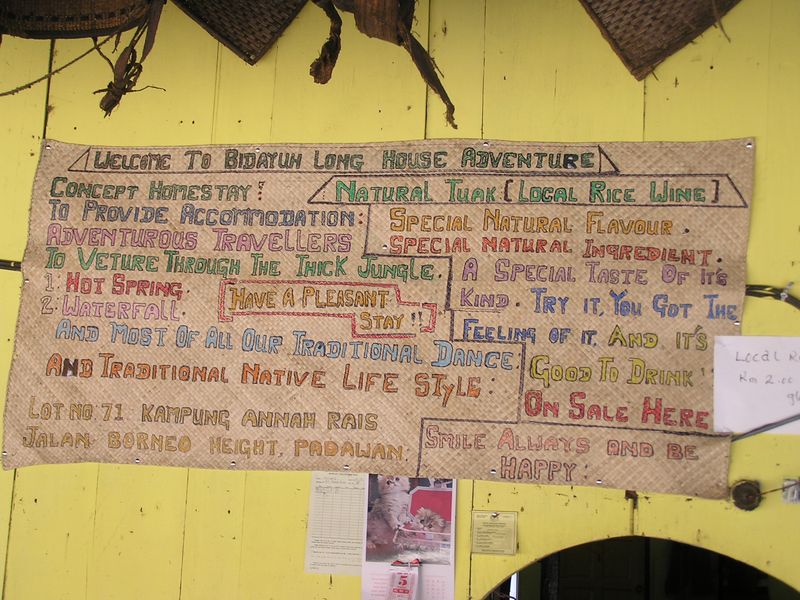 WELCOME TO BIDAYUH LONG HOUSE ADVENTURE
CONCEPT HOMESTAY:
TO PROVIDE ACCOMMODATION:
ADVENTUROUS TRAVELLERS
TO VETURE THROUGH THE THICK JUNGLE.
1. HOT SPRING.
2. WATERFALL.
HAVE A PLEASANT
STAY!!
AND MOST OF ALL OUR TRADITIONAL DANCE
AND TRADITIONAL NATIVE LIFE STYLE:
LOT NO. 71 KAMPUNG ANNAH RAIS
JALAN BORNEO HEIGHT, PADAWAN.
NATURAL TUAK [LOCAL RICE WINE]
SPECIAL NATURAL FLAVOUR.
SPECIAL NATURAL INGREDIENT.
A SPECIAL TASTE OF IT'S
KIND. TRY IT, YOU GOT THE
FEELING OF IT. AND IT'S
GOOD TO DRINK!!
ON SALE HERE
SMILE ALWAYS AND BE
HAPPY:
Local
Rm 2.00
5